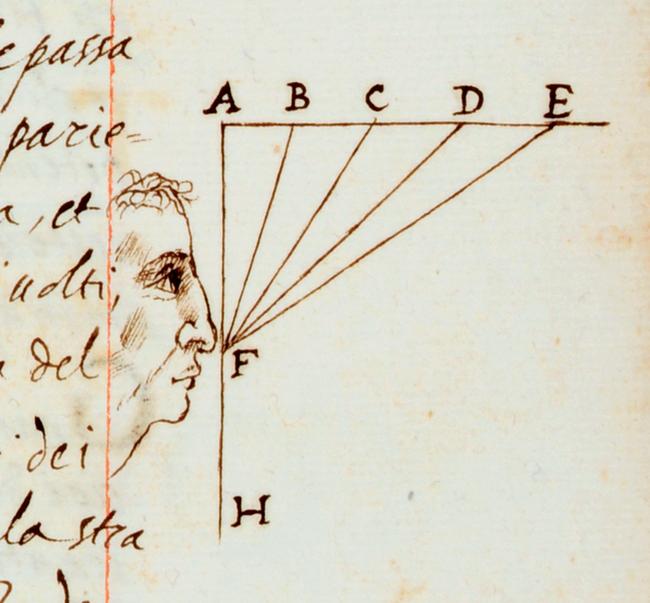 passa
A B C D E
parie=
a, et
uolti,
F
del
dei
H
la stra